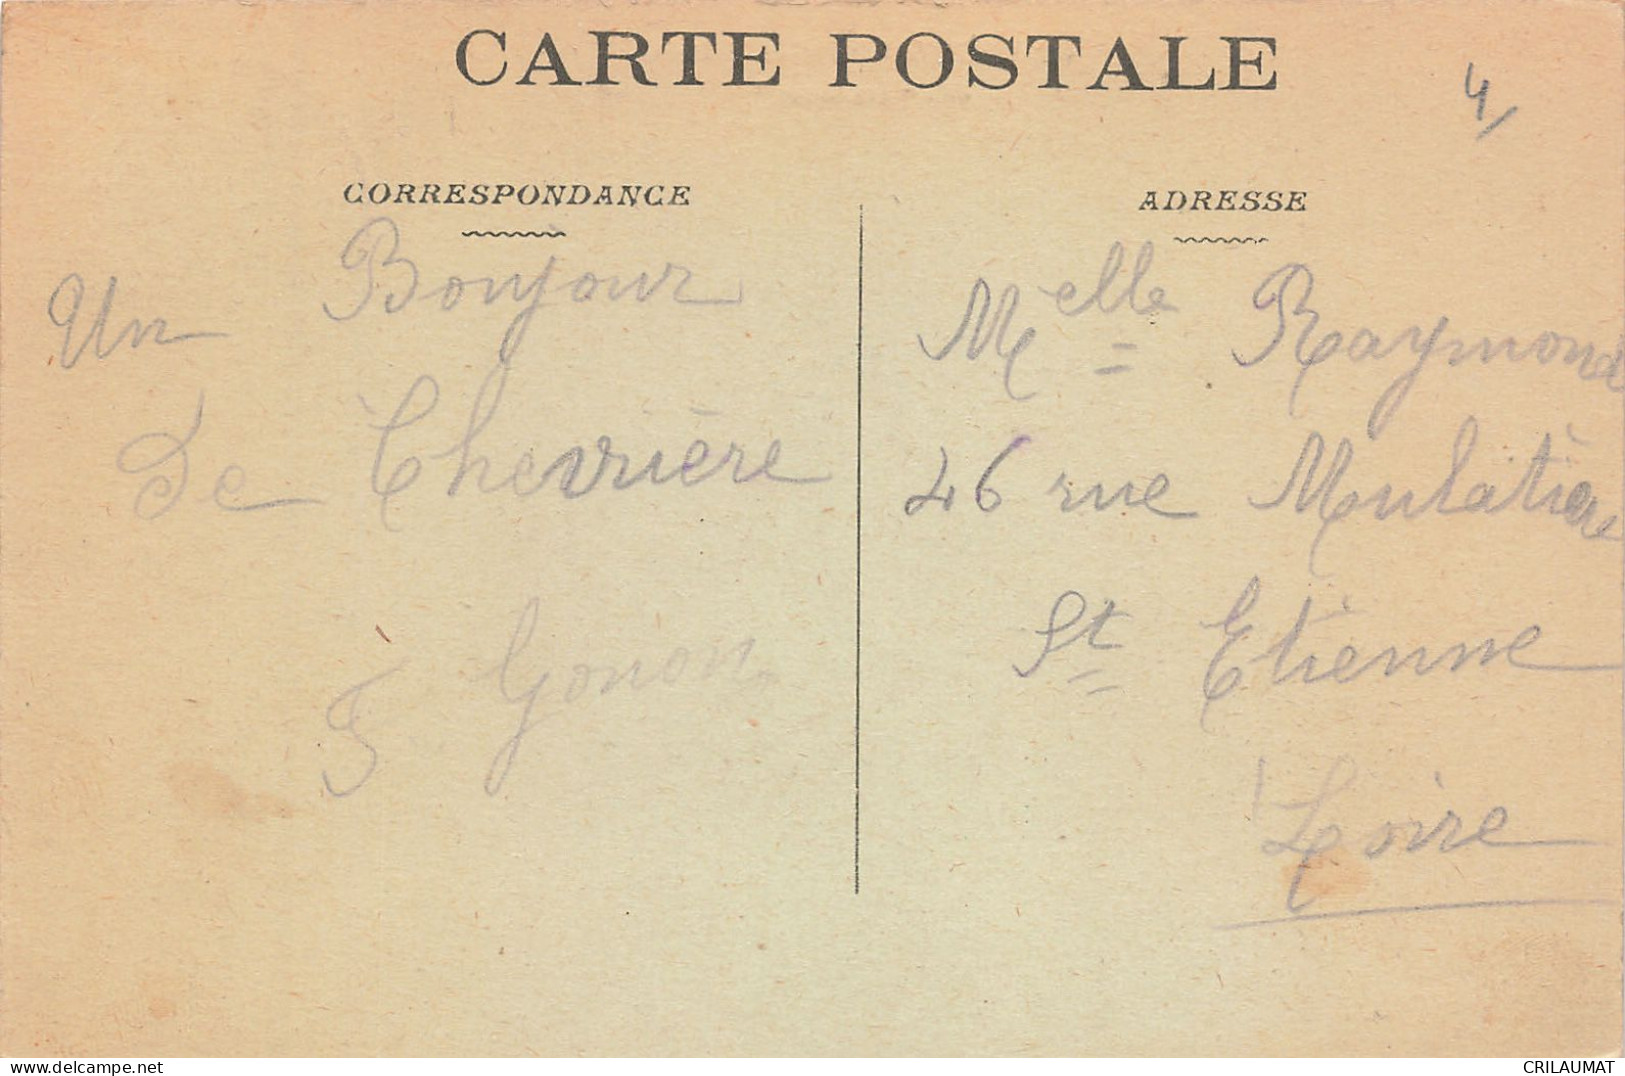 CARTE POSTALE
4
CORRESPONDANCE
Un Bonjour
de Chevrière
F Gonon
ADRESSE
Melle Raymond
46 rue Mulatière
St Etienne
Loire
delcampe.net
CRILAUMAT